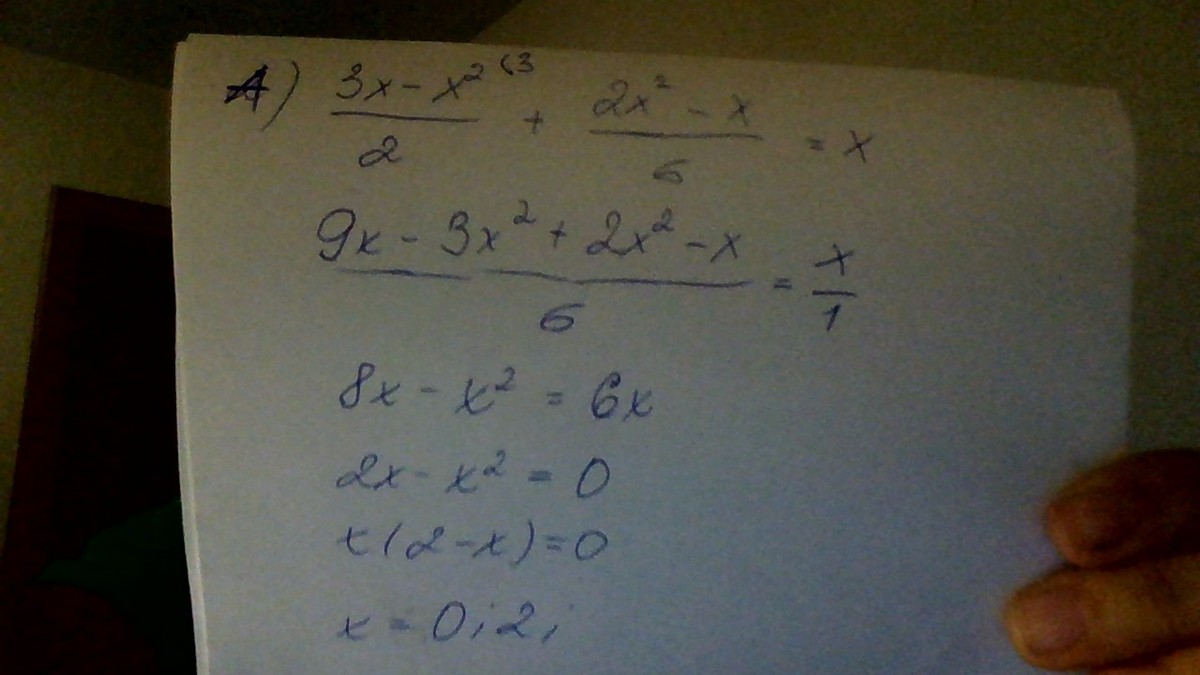 A) (3x - x²)/2 ⁽³ + (2x² - x)/6 = x
(9x - 3x² + 2x² - x)/6 = x/1
8x - x² = 6x
2x - x² = 0
x(2-x)=0
x = 0; 2;